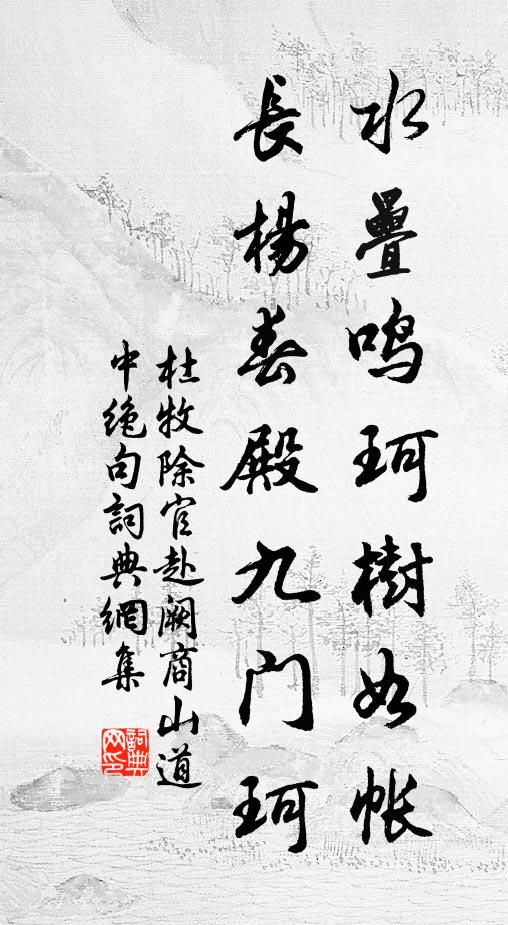 水疊鸣珂樹如帐
長楊春殿九门珂
杜牧除官赴阙商山道
中绝句詞典網集
詞典
网印